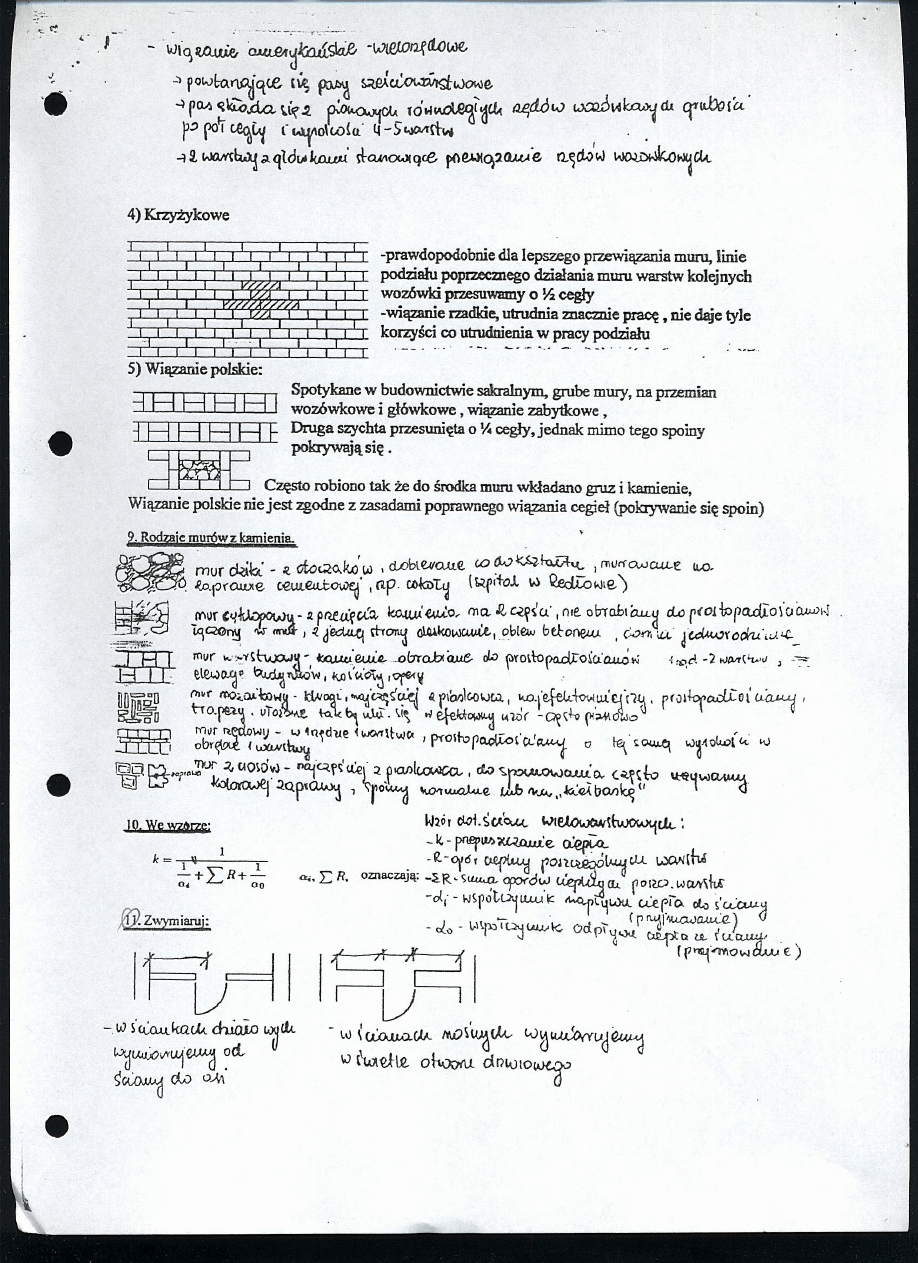 - wiązanie amerykańskie - wielorzędowe
→ powtarzające się pasy sześciowarstwowe
→ pas składa się z pionowych równoległych rzędów wozówkowych grubości
po pół cegły i wysokości 4-5 warstw
→ 2 warstwy z główkami stanowiące przewiązanie rzędów wozówkowych
4) Krzyżykowe
-prawdopodobnie dla lepszego przewiązania muru, linie
podziału poprzecznego działania muru warstw kolejnych
wozówki przesuwamy o ½ cegły
-wiązanie rzadkie, utrudnia znacznie pracę , nie daje tyle
korzyści co utrudnienia w pracy podziału
5) Wiązanie polskie:
Spotykane w budownictwie sakralnym, grube mury, na przemian
wozówkowe i główkowe , wiązanie zabytkowe ,
Druga szychta przesunięta o ¼ cegły, jednak mimo tego spoiny
pokrywają się .
Często robiono tak że do środka muru wkładano gruz i kamienie,
Wiązanie polskie nie jest zgodne z zasadami poprawnego wiązania cegieł (pokrywanie się spoin)
9. Rodzaje murów z kamienia.
mur dziki - z otoczaków, dobierane co do kształtu, murowane na
zaprawie cementowej, np. cokoły (szpital w Redłowie)
mur cyklopowy - z przecięcia kamienia na 2 części, nie obrabiany do prostopadłościanów
łączony w mur, z jednej strony deskowanie, oblew betonem,
mur warstwowy - kamienie obrabiane do prostopadłościanów 1 rząd - 2 warstwy,
elewacje budynków, kościoły, opery
mur mozaikowy - kwadry, najczęściej z piaskowca, najefektowniejszy, prostopadłościany,
trapezy. ułożone tak by się w efektowny wzór - często pionowo
mur rzędowy - w 1 rzędzie 1 warstwa, prostopadłościany o tej samej wysokości w
obrębie 1 warstwy
zaprawa
mur z ciosów - najczęściej z piaskowca, do spoinowania często używamy
kolorowej zaprawy, spoiny normalne lub na „kiełbaskę"
10. We wzorze:
k = 1 / (1/αi + ∑ R + 1/α0) αi, ∑ R, oznaczają:
Wzór dot. ścian wielowarstwowych:
- k - przepuszczanie ciepła
- R - opór cieplny poszczególnych warstw
- ΣR - suma oporów cieplnych poszcz. warstw
- αi - współczynnik napływu ciepła do ściany
(przyjmowanie)
- αo - współczynnik odpływu ciepła ze ściany
(przejmowanie)
11. Zwymiaruj:
- w ściankach działowych
wymiarujemy od
ściany do osi
- w ścianach nośnych wymiarujemy
w świetle otworu drzwiowego